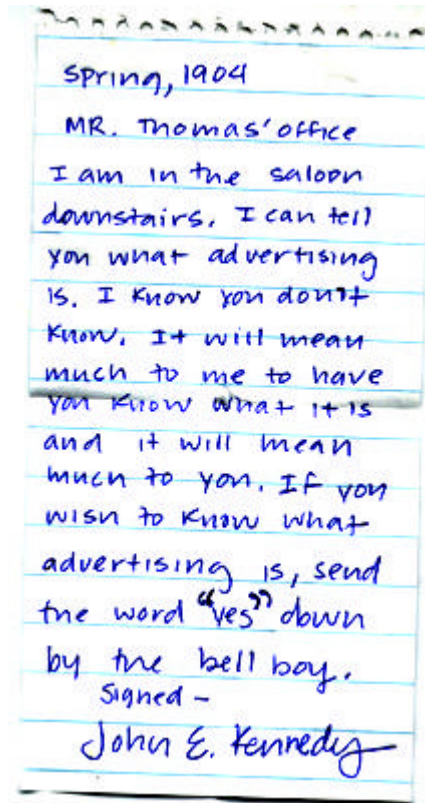 Spring, 1904
MR. Thomas' office
I am in the saloon
downstairs. I can tell
you what advertising
is. I know you don't
know. It will mean
much to me to have
you know what it is
and it will mean
much to you. If you
wish to know what
advertising is, send
the word "yes" down
by the bell boy.
Signed –
John E. Kennedy